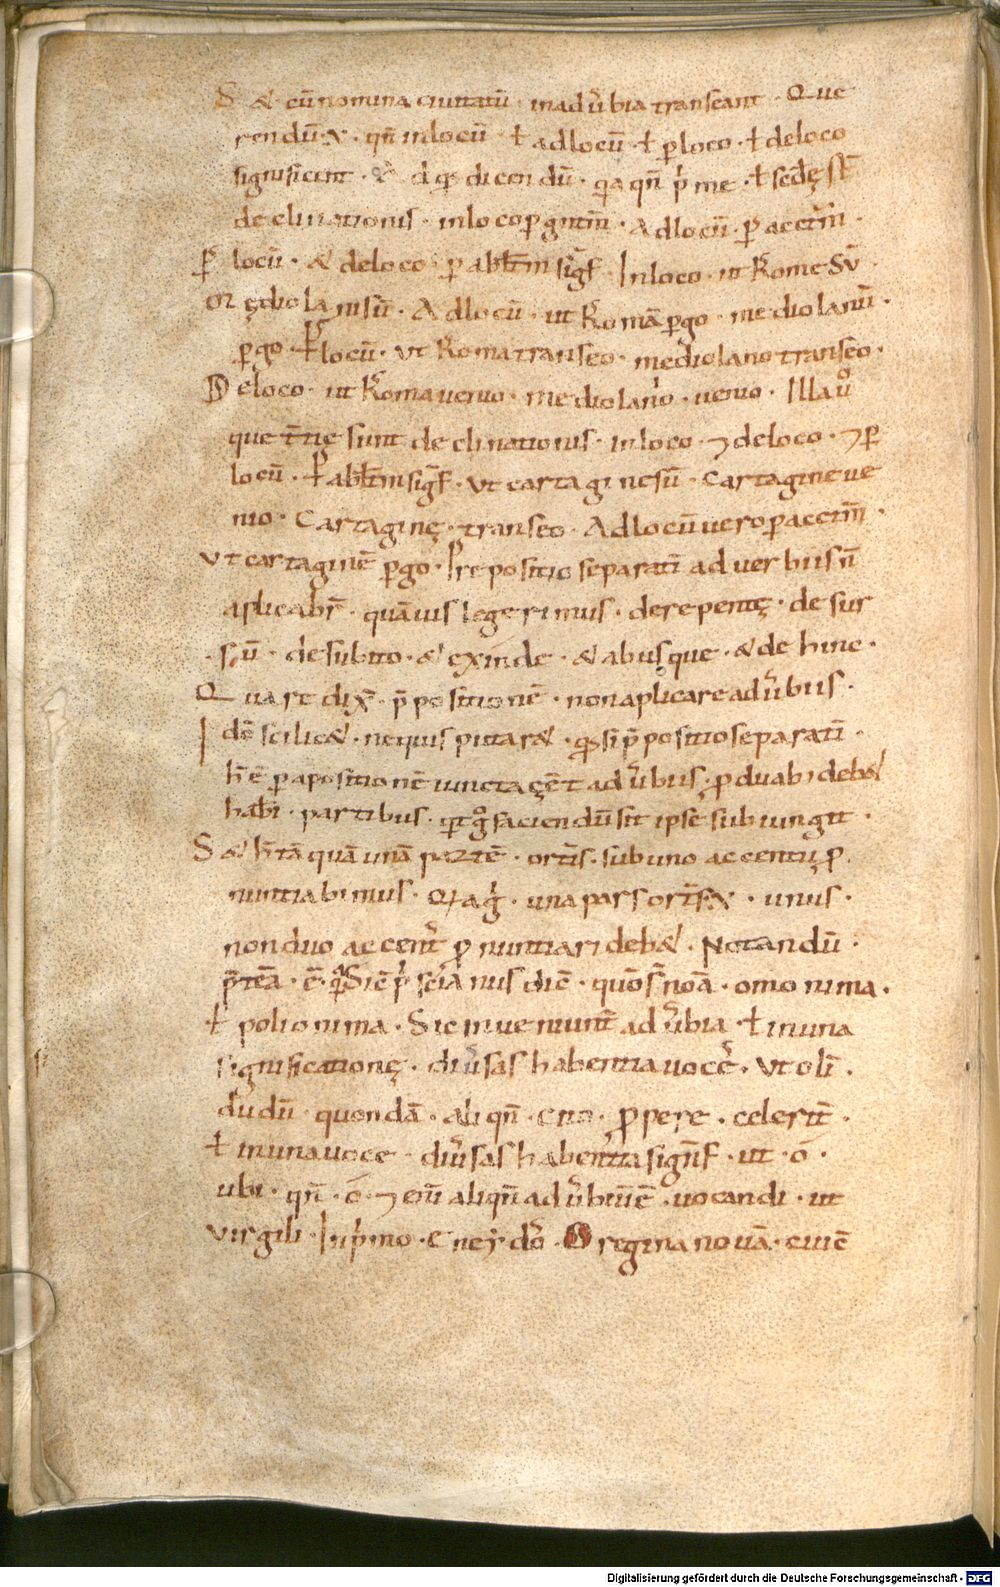 S & cū nomina ciuitatū · in adu̅bia transeant · Que
rendū · qn̄ in locū · ł ad locū · ł p̱ loco · ł de loco
significent · dicendū · quia qn̄ p̄me · ł sedę st̄
declinationis · in loco p̱ gnt̄m · Ad locū · p̱ acct̄m ·
P̱ locū · & de loco · p̱ ablt̄m sigf̄ · In loco · ut Romę Sū ·
ł Mediolani sū · Ad locū · ut Romā p̱go · mediolanū ·
p̱go · P̱ locū · ut Roma transeo · mediolano transeo ·
De loco · ut Roma uenio · mediolano · uenio · Illa u̅o
que t̄tię sunt declinationis · in loco · ⁊ de loco · ⁊ p̱
locū · P̱ ablt̄m sigf̄ · ut cartagine sū · Cartagine ue
nio · Cartaginę · transeo · Ad locū uero p̱ acct̄m ·
Ut cartaginē p̱go · Prepositio separatī aduerbiis n̄
aplicabr̄ · quāuis legerimus · derepentę · desur
sū · desubito · & exinde · & abusque · & dehinc ·
Quare dix̄ · p̄positionē · non aplicare adu̅biis ·
Idē scilic& · nequis putar& · qđ si p̄positio separatī ·
h̄ ē p̱ apositionē iuncta eēt adu̅biis · p̱ duab; deb&
habi · partibus · faciendū sit ipse subiungit ·
S & h̄ tā quā unā partē · ort̄is · sub uno accentu p̱
nuntiabimus · una pars ort̄is · unus ·
non duo accent̄ p̱nuntiari deb& · Notandū ·
p̄t̄eā · ē · priscianus dic̄ · quō sn̄ noā · omonima ·
ł polionima · Sic inueniunt̄ adu̅bia · ł in una
significationę · diu̅sas habentia uocē · Ut oli ·
dudū · quondā · aliqn̄ · cito · p̱pere · celerit̄ ·
ł in una uoce · diu̅sas habentia signf̄ · ut · o ·
ubi · qn̄ · o · ⁊ cū aliqn̄ adu̅biū ē · uocandi · ut
Virgili · In p̄mo · Eneydo · O regina nouā · cui ē
Digitalisierung gefördert durch die Deutsche Forschungsgemeinschaft - DFG